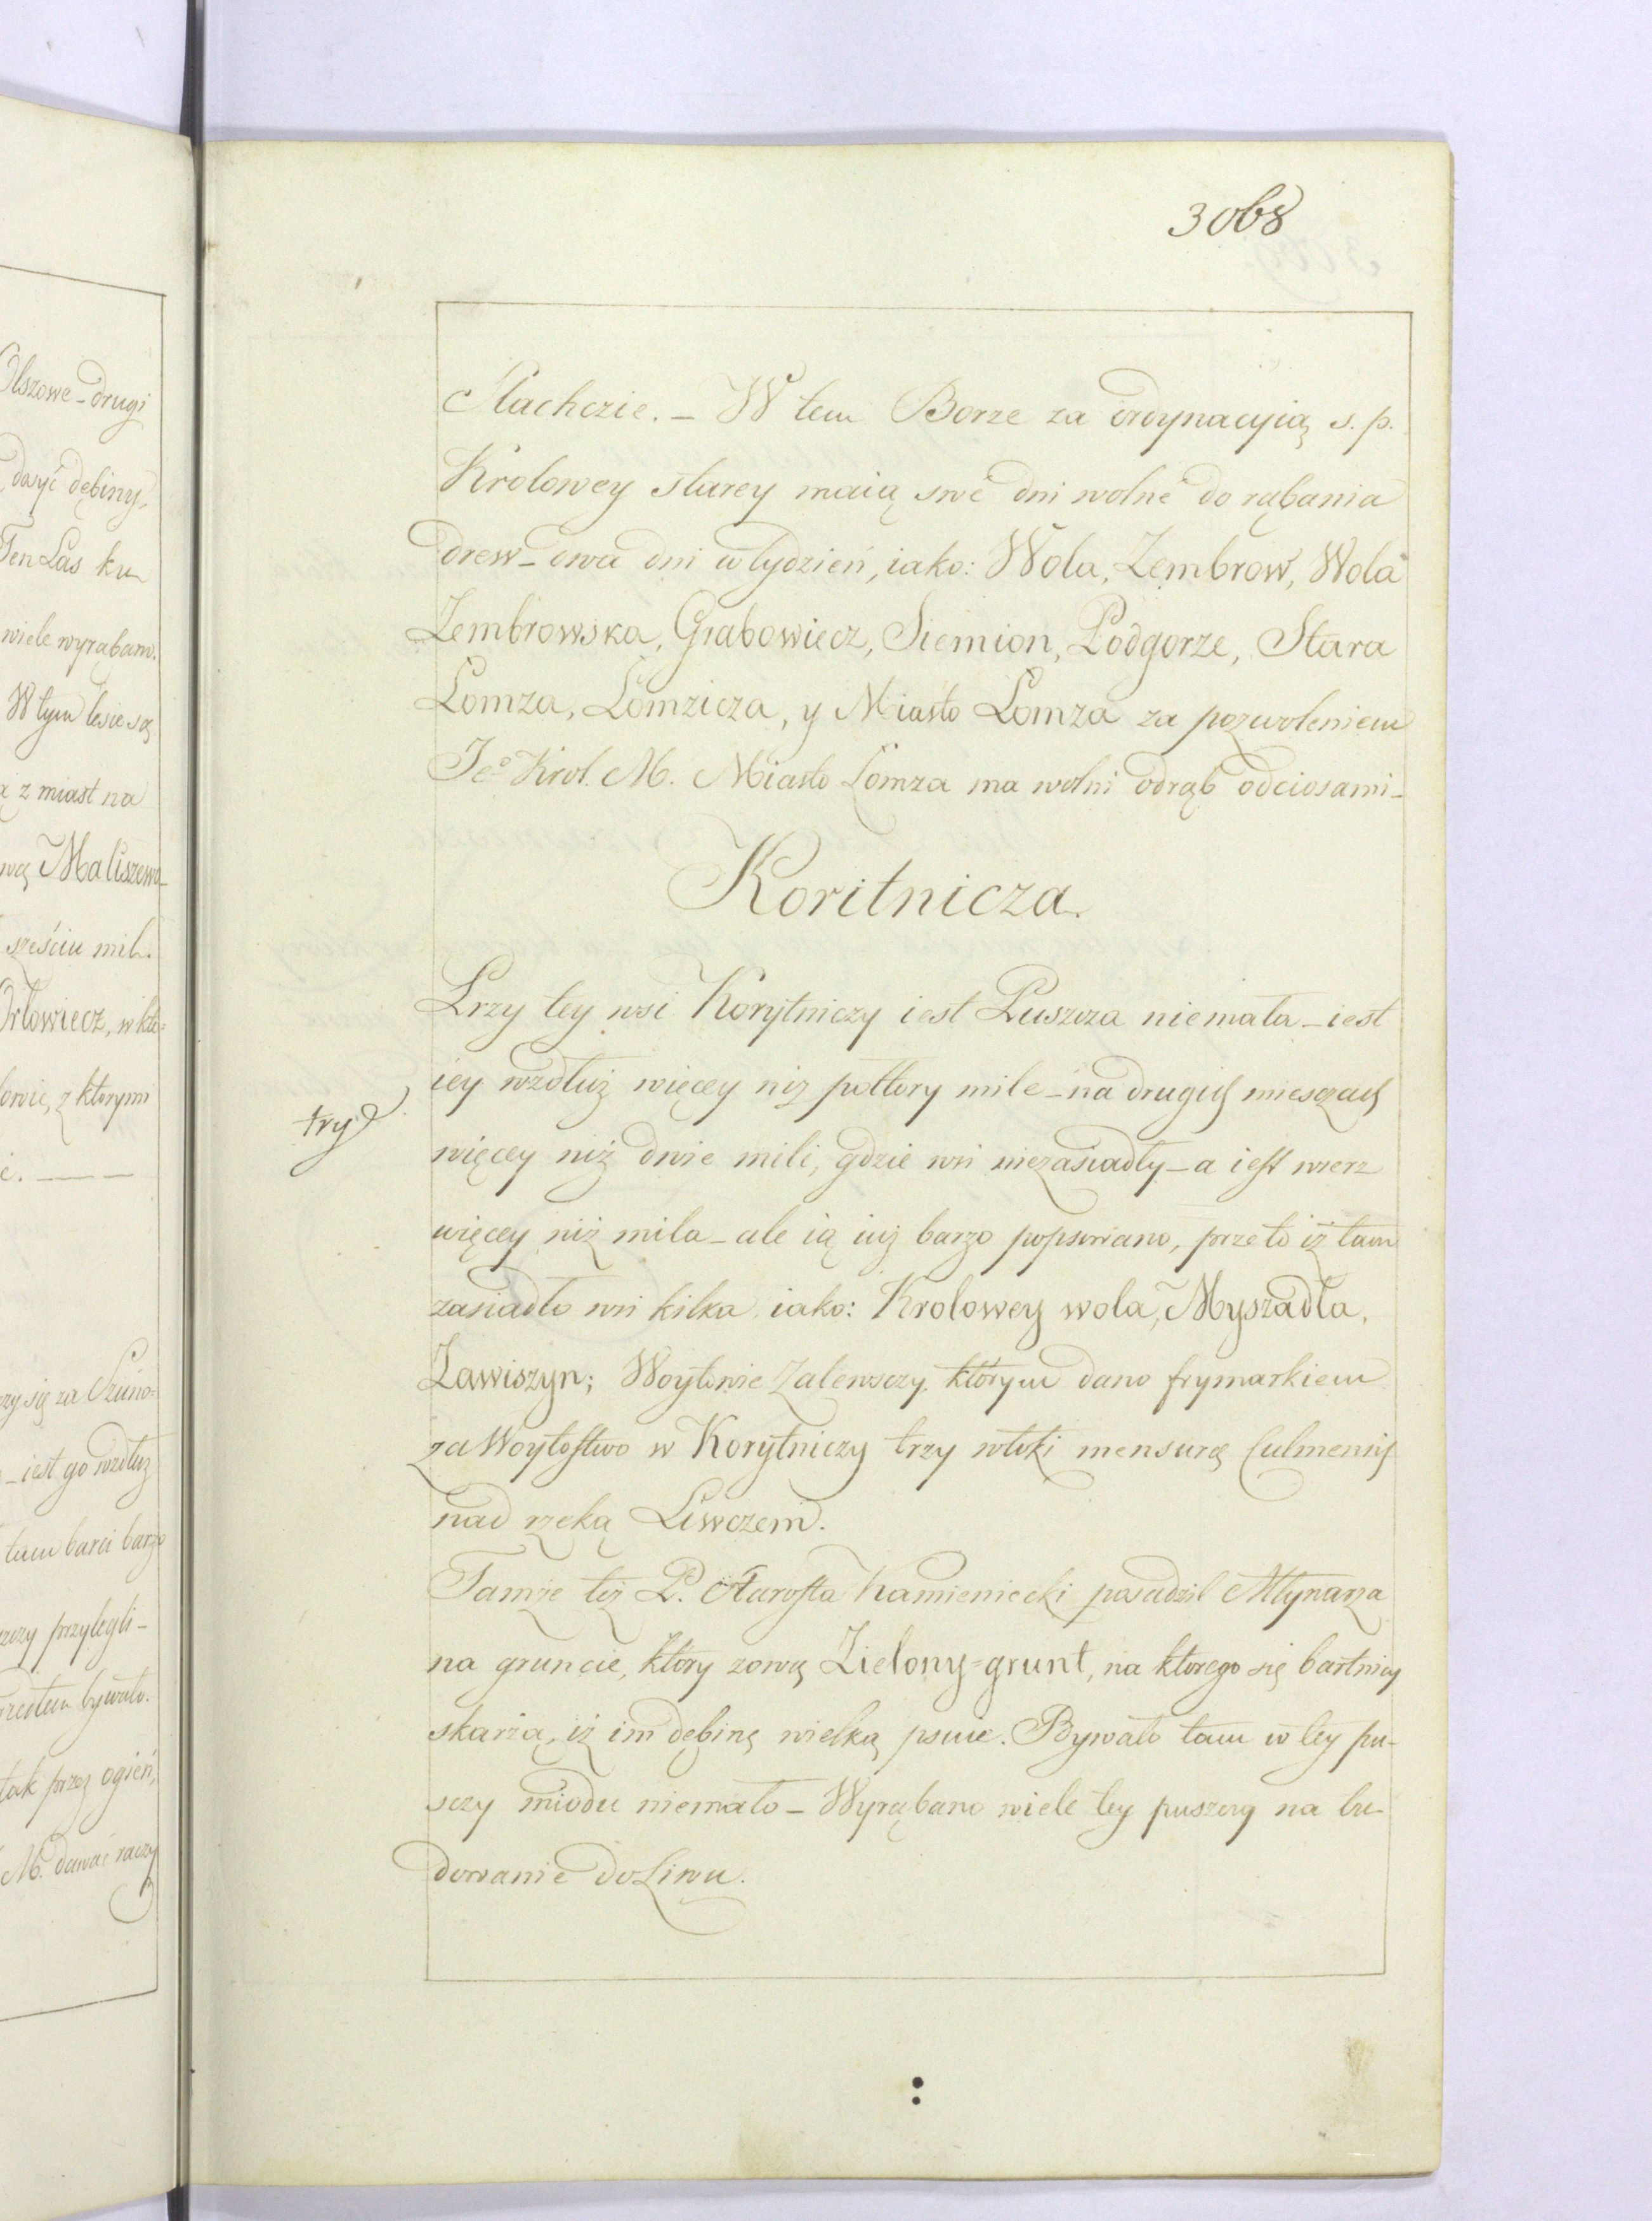 3068
Stachczie. – W tem Borze za ordynacyią s. p.
Krolowey starey maią swe dni wolne do rąbania
drew – dwa dni w tydzień, iako: Wola, Zembrow, Wola
Zembrowska, Grabowiecz, Siemion, Podgorze, Stara
Lomza, Lomzicza, y Miasto Lomza za pozwoleniem
Jeº Krol. M. Miasto Lomza ma wolni odrąb odciosami –
Koritnicza.
Przy tey wsi Korytniczy iest Puszcza niemała – iest
iey wzdłuż więcey niż połtory mile – na drugich miesczach
try
więcey niż dwie mili, gdzie wsi niezasiadły – a iest wserz
więcey niż mila – ale ią iuż barzo popsowano, przeto iż tam
zasiadło wsi kilka iako: Krolowey wola, Myszadła,
Zawiszyn; Woytowie Zalewsczy, ktorym dano frymarkiem
za Woytostwo w Korytniczy trzy włoki mensurą Culmensi
nad rzeką Liwczem.
Tamże też P. Starosta Kamieniecki posadzil Młynarza
na gruncie, ktory zową Zielony=grunt, na ktorego się bartnicy
skarżą, iż im dębinę wielką psuie. Bywało tam w tey pu-
sczy miodu niemało – Wyrąbano wiele tey puszczy na bu-
dowanie do Liwu.
Olszowe – drugi
dosyć dębiny,
Ten Las ku
wiele wyrąbano.
W tym lesie są
z miast na
wą Maliszewo
sześciu mil.
Orłowiecz, w kto=
z ktorymi
zy się za
– iest go wzdłuż
tam barci barzo
przylegli –
przedtem bywało.
tak przez ogień,
M. dawać raczy